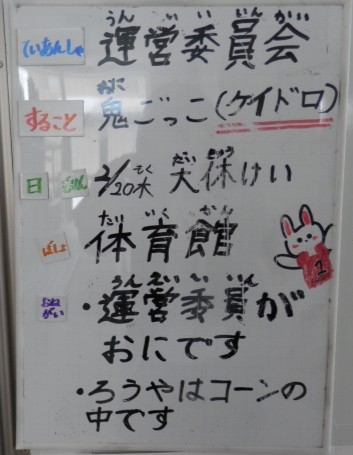 ていあんしゃ 運営委員会
うんえいいいんかい
すること 鬼ごっこ(ケイドロ)
おに
日 じかん 2/20木 大休けい
もく だい きゅう
ばしょ 体育館
たい いく かん
おねがい ・運営委員が
うんえいいいん
おにです
・ろうやはコーンの
中です
1